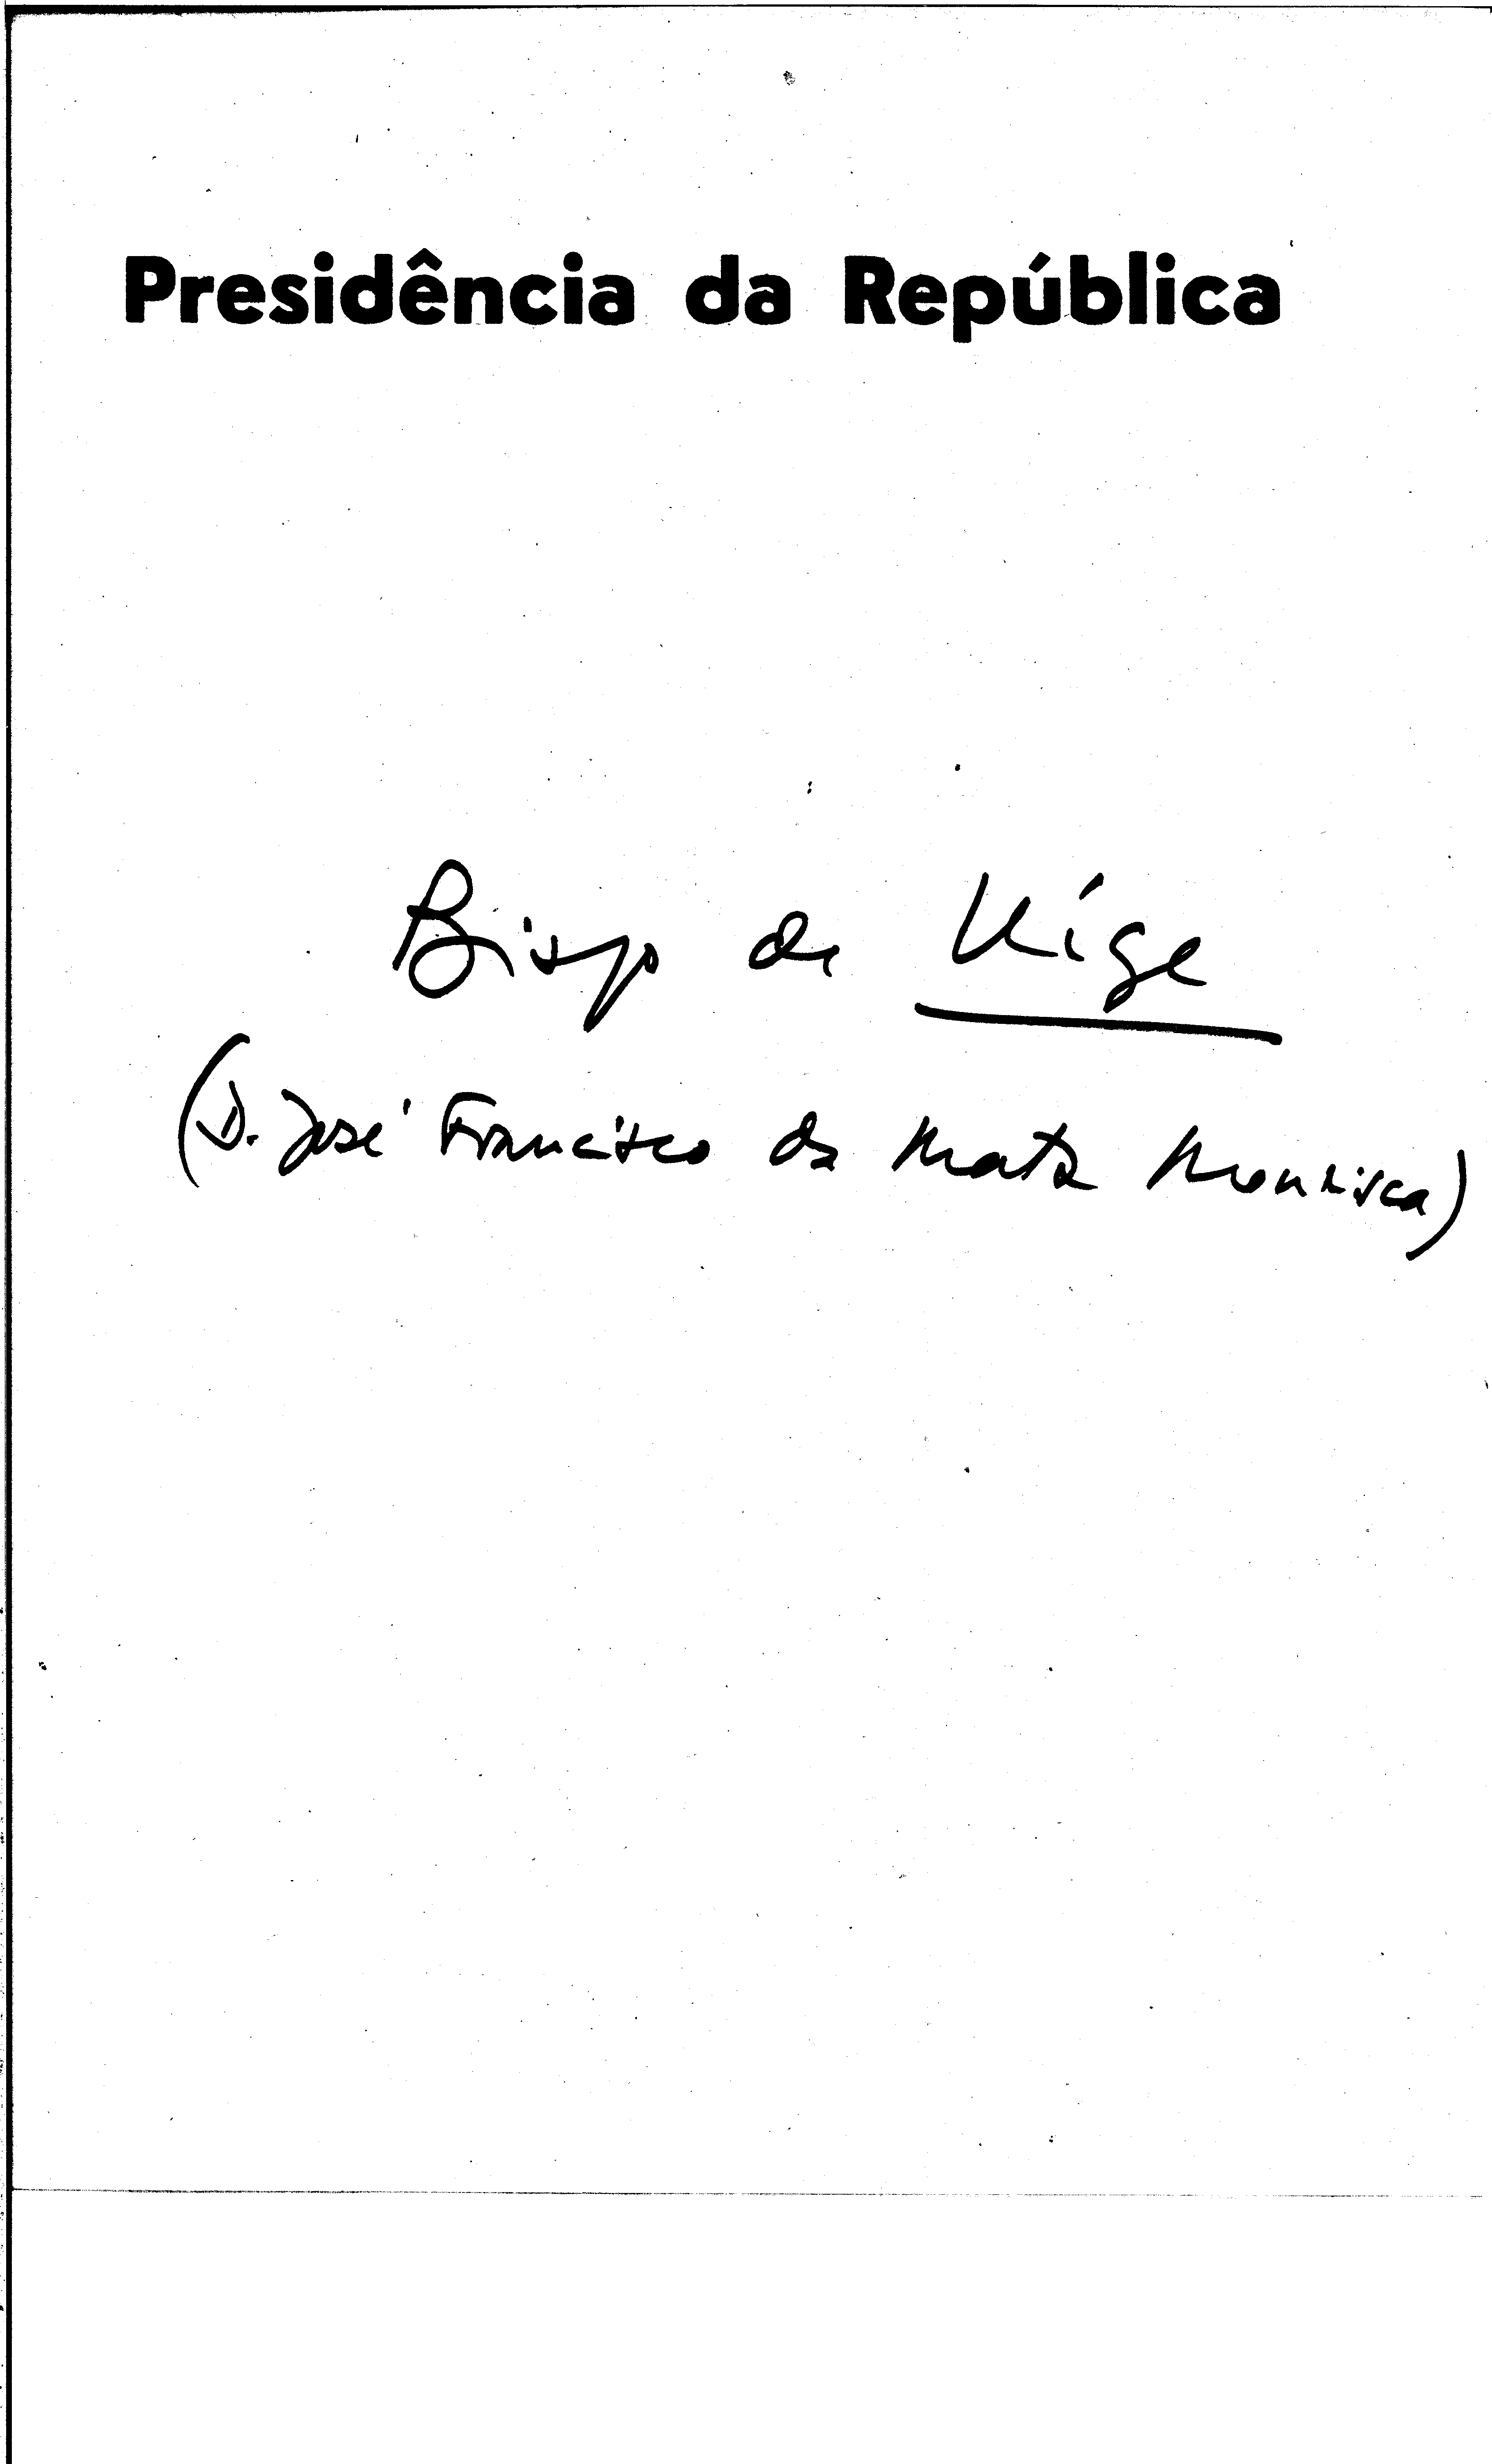 Presidência da República
Bispo de Uíge
(D. José Francisco da Mata Mourisca)